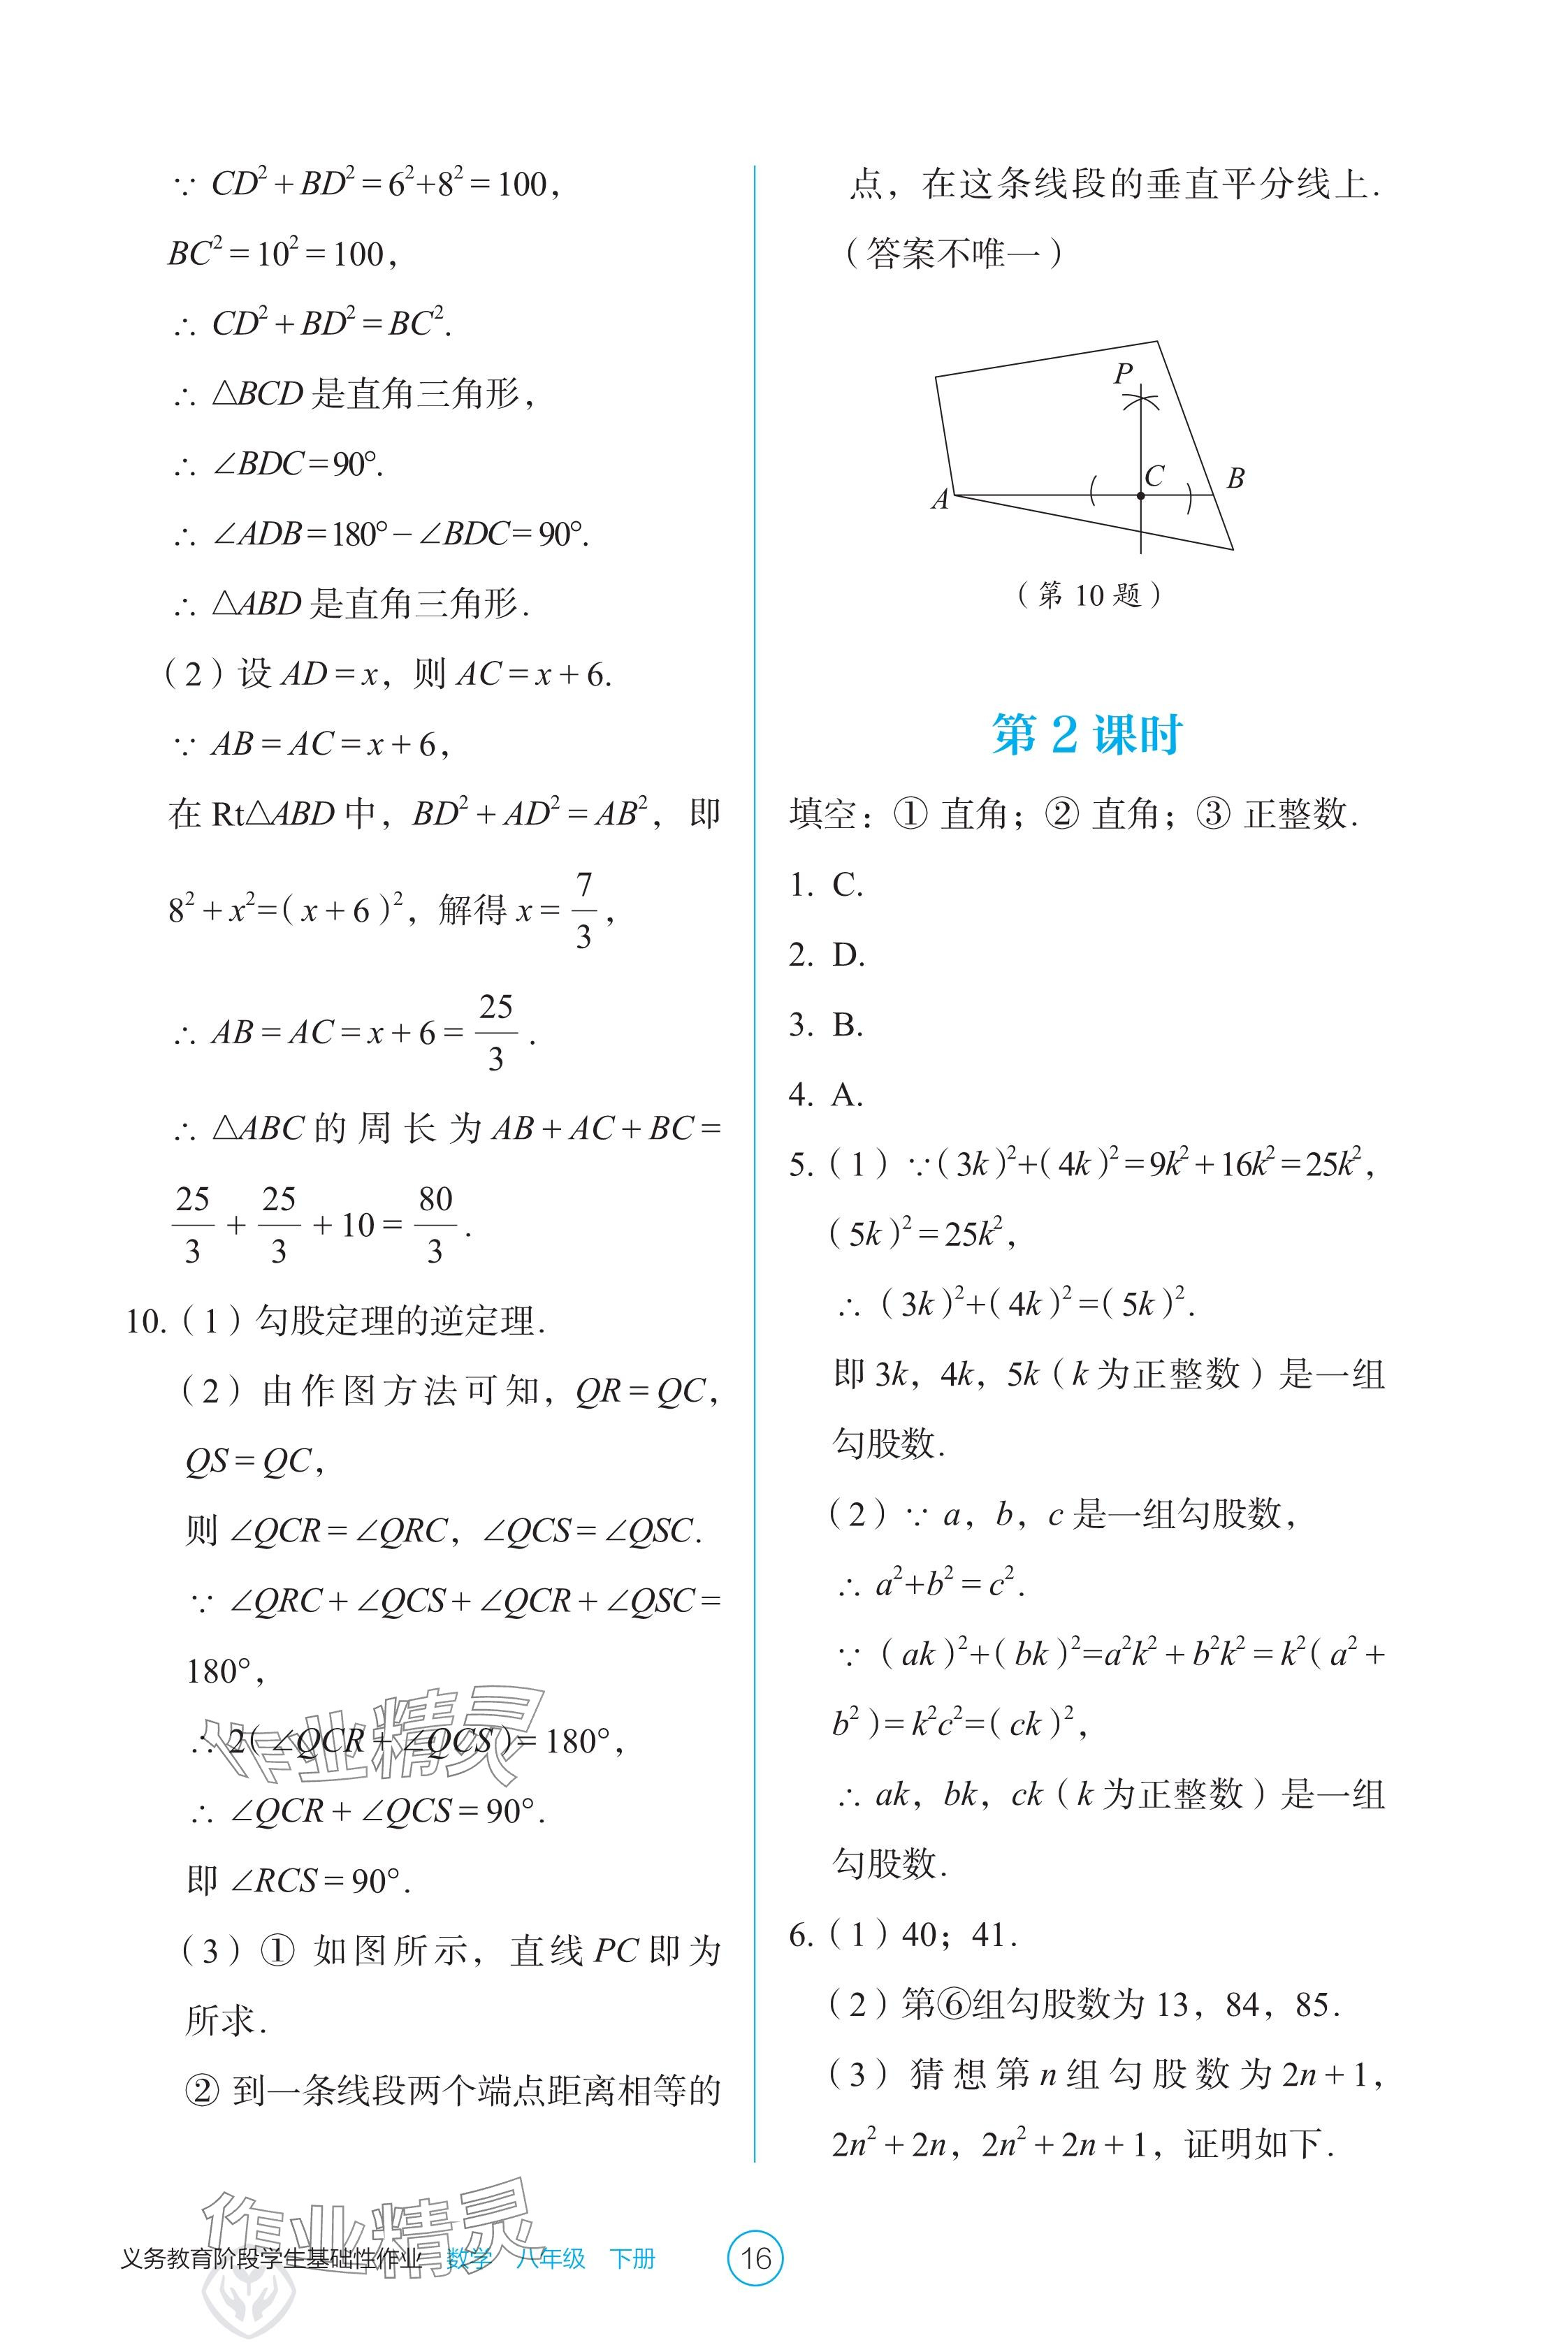 ∵ CD²+BD²=6²+8²=100，
BC²=10²=100，
∴ CD²+BD²=BC².
∴ △BCD是直角三角形，
∴ ∠BDC=90°.
∴ ∠ADB=180°−∠BDC=90°.
∴ △ABD是直角三角形.
（2）设AD=x，则AC=x+6.
∵ AB=AC=x+6，
在Rt△ABD中，BD²+AD²=AB²，即
8²+x²=(x+6)²，解得x=7/3，
∴ AB=AC=x+6=25/3.
∴ △ABC的周长为AB+AC+BC=
25/3+25/3+10=80/3.
10.（1）勾股定理的逆定理.
（2）由作图方法可知，QR=QC，
QS=QC，
则∠QCR=∠QRC，∠QCS=∠QSC.
∵ ∠QRC+∠QCS+∠QCR+∠QSC=
180°，
∴ 2(∠QCR+∠QCS)=180°，
∴ ∠QCR+∠QCS=90°.
即∠RCS=90°.
（3）① 如图所示，直线PC即为
所求.
② 到一条线段两个端点距离相等的
点，在这条线段的垂直平分线上.
（答案不唯一）
P
C
B
A
（第10题）
第2课时
填空：① 直角；② 直角；③ 正整数.
1. C.
2. D.
3. B.
4. A.
5.（1）∵(3k)²+(4k)²=9k²+16k²=25k²，
(5k)²=25k²，
∴ (3k)²+(4k)²=(5k)².
即3k，4k，5k（k为正整数）是一组
勾股数.
（2）∵ a，b，c是一组勾股数，
∴ a²+b²=c².
∵ (ak)²+(bk)²=a²k²+b²k²=k²(a²+
b²)=k²c²=(ck)²，
∴ ak，bk，ck（k为正整数）是一组
勾股数.
6.（1）40；41.
（2）第⑥组勾股数为13，84，85.
（3）猜想第n组勾股数为2n+1，
2n²+2n，2n²+2n+1，证明如下.
作业精灵
作业精灵
义务教育阶段学生基础性作业 数学 八年级 下册
16